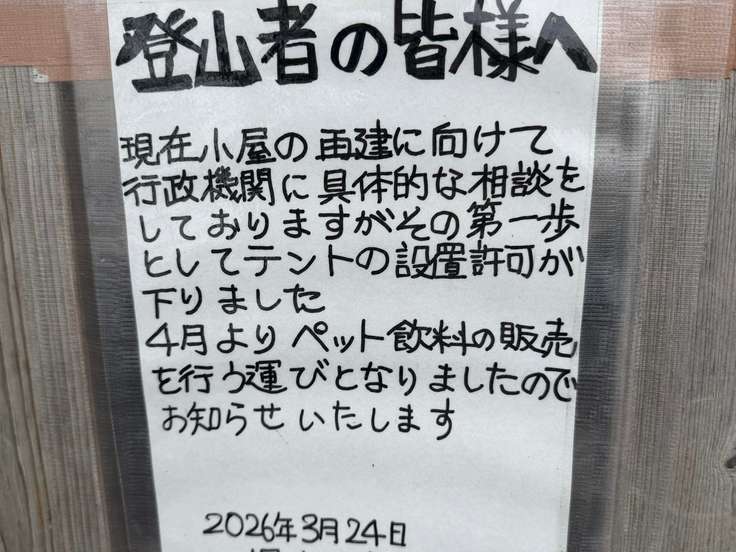 登山者の皆様へ
現在小屋の再建に向けて
行政機関に具体的な相談を
しておりますがその第一歩
としてテントの設置許可が
下りました
4月よりペット飲料の販売
を行う運びとなりましたので
お知らせいたします
2026年3月24日